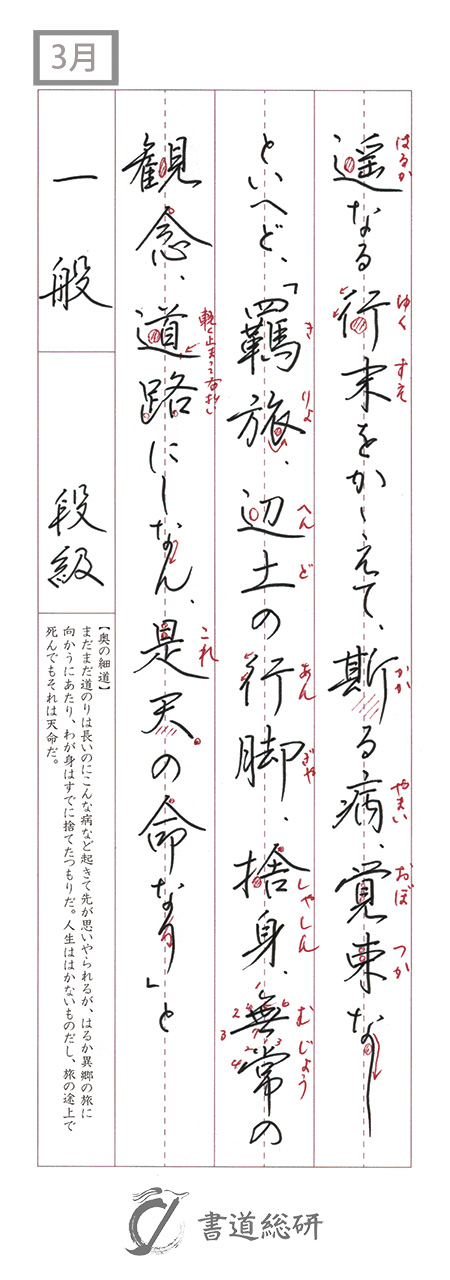 3月
遥なる行末をかゝえて、斯る病、覚束なし
はるか ゆく すえ かか やまい おぼ つか
といへど、「羇旅、辺土の行脚、捨身、無常の
き りよ へん ど あん ぎや しやしん むじよう
観念、道路にしなん、是天の命なり」と
軽く止まって右払い これ
一般
段級
【奥の細道】
まだまだ道のりは長いのにこんな病など起きて先が思いやられるが、はるか異郷の旅に
向かうにあたり、わが身はすでに捨てたつもりだ。人生ははかないものだし、旅の途上で
死んでもそれは天命だ。
書道総研